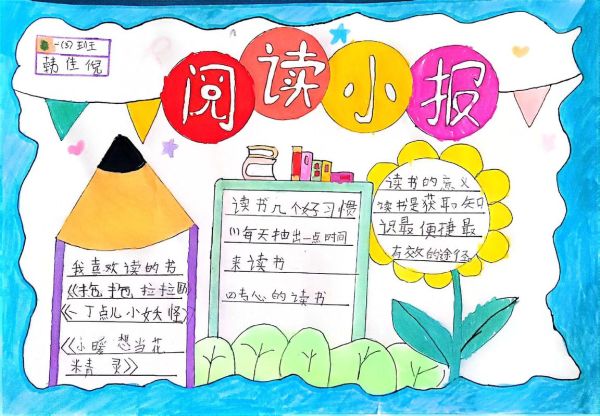 一(四)班
韩佳倪
阅读小报
我喜欢读的书
《拖拖拉拉
《一丁点儿小妖怪》
《小暖想当花
精灵》
读书几个好习惯
(1)每天抽出一点时间
来读书
四专心的读书
读书的意义
读书是获取知
识最便捷最
有效的途径